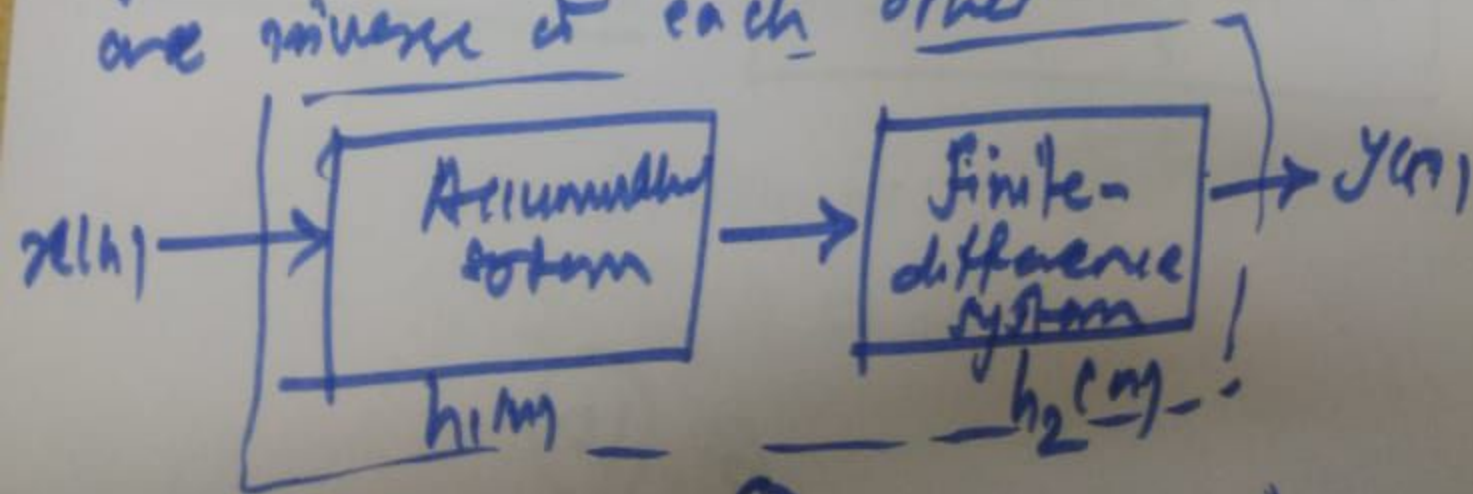 are inverse of each other
x(n)
Accumulator
system
h₁(n)
finite-
difference
system
h₂(n)
y(n)